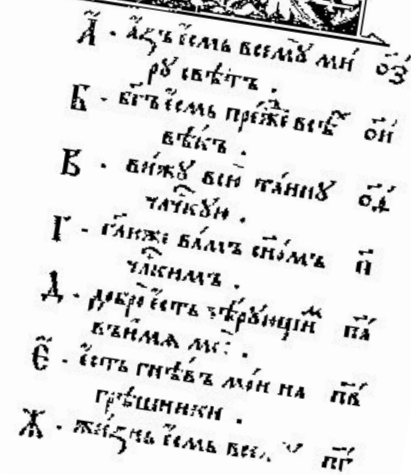 А҃ · а҆́зъ є҆́смь всемꙋ̀ ми́рꙋ ѻ҃з
рꙋ свѣ́тъ ·
Б · бг҃ъ є҆́смь пре́жде всѣ́х ѻ҃и
вѣ́къ ·
В · ви́жꙋ всю̀ та́инꙋ ѻ҃д
чл҃чкꙋю ·
Г · гл҃ю же ва́мъ сн҃о́мъ п҃
чл҃кимъ ·
Д · добро̀ є҆́сть вѣ́рꙋющим п҃а
въ и҆́мѧ моѐ ·
Є · є҆́сть гнѣ́въ мо́и на п҃в
грѣ́шники ·
Ж · жи́знь є҆́смь п҃г